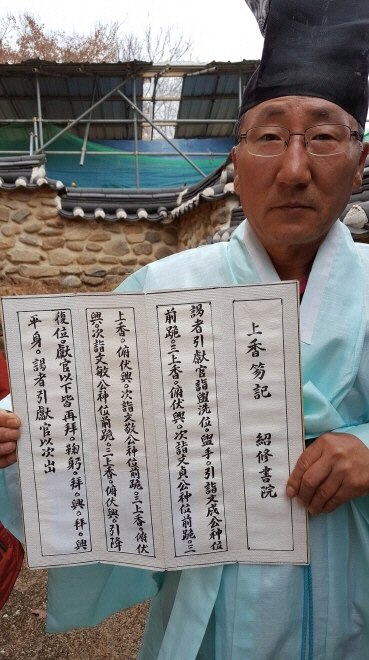 上香笏記 紹修書院
謁者引獻官詣盥洗位。盥手。引詣文成公神位
前跪。三上香。俯伏興。次詣文貞公神位前跪。三
上香。俯伏興。次詣文敬公神位前跪。三上香。俯伏
興。次詣文敏公神位前跪。三上香。俯伏興。引降
復位。獻官以下皆再拜。鞠躬。拜。興。拜。興
平身。謁者引獻官以次出